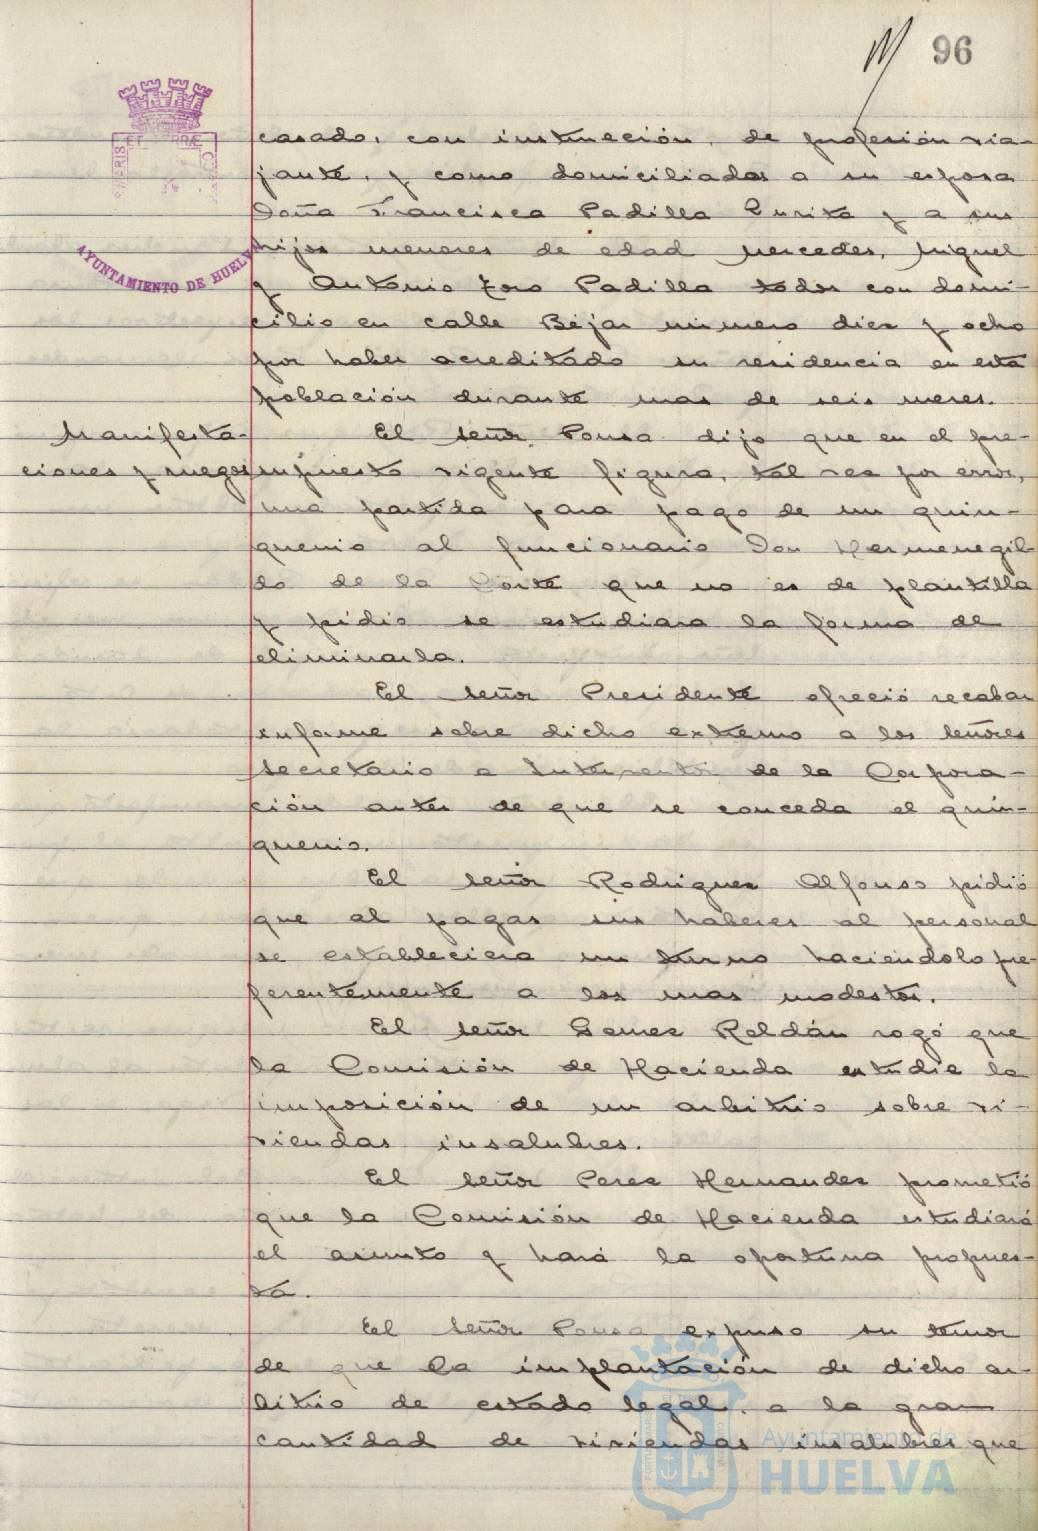 96
casado, con instrucción, de profesión via-
jante, y como domiciliados a su esposa
Doña Francisca Padilla Zurita y a sus
hijos menores de edad Mercedes, Miguel
y Antonio Toro Padilla todos con domi-
cilio en calle Béjar número diez y ocho
por haber acreditado su residencia en esta
población durante mas de seis meses.
Manifesta-
ciones y ruegos
El señor Ponsa dijo que en el pre-
supuesto vigente figura, tal vez por error,
una partida para pago de un quin-
quenio al funcionario Don Hermenegil-
do de la Corte que no es de plantilla
y pidio se estudiara la forma de
eliminarla.
El señor Presidente ofreció recabar
informe sobre dicho extremo a los señores
Secretario e Interventor de la Corpora-
ción antes de que se conceda el quin-
quenio.
El señor Rodriguez Alfonso pidió
que al pagar sus haberes al personal
se estableciera un turno haciendolo pre-
ferentemente a los mas modestos.
El señor Gomez Roldán rogó que
la Comisión de Hacienda estudie la
imposición de un arbitrio sobre vi-
viendas insalubres.
El señor Perez Hernandez prometió
que la Comisión de Hacienda estudiará
el asunto y hará la oportuna propues-
ta.
El señor Ponsa expuso su temor
de que la implantación de dicho ar-
bitrio de estado legal, a la gran
cantidad de viviendas insalubres que
AYUNTAMIENTO DE HUELVA
Ayuntamiento de
HUELVA